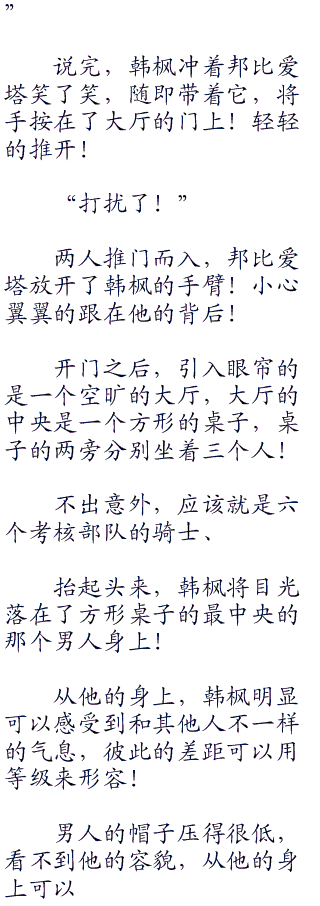 ”
说完，韩枫冲着邦比爱
塔笑了笑，随即带着它，将
手按在了大厅的门上！轻轻
的推开！
“打扰了！”
两人推门而入，邦比爱
塔放开了韩枫的手臂！小心
翼翼的跟在他的背后！
开门之后，引入眼帘的
是一个空旷的大厅，大厅的
中央是一个方形的桌子，桌
子的两旁分别坐着三个人！
不出意外，应该就是六
个考核部队的骑士、
抬起头来，韩枫将目光
落在了方形桌子的最中央的
那个男人身上！
从他的身上，韩枫明显
可以感受到和其他人不一样
的气息，彼此的差距可以用
等级来形容！
男人的帽子压得很低，
看不到他的容貌，从他的身
上可以